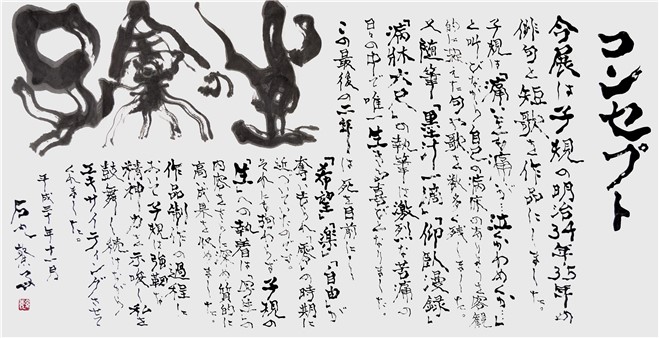 コンセプト
今展は子規の明治34年35年の
俳句と短歌を作品にしました。
子規は「痛い 痛い 泣くかわめくか
と叫びながら自己の病床のありさまを客観
的に捉えた句や歌を数多く残しました。
又随筆「墨汁一滴」「仰臥漫録」
「病牀六尺」の執筆は激烈な苦痛の
日々の中で唯一生きる喜びになりました。
この最後の二年は死を目前にし
生の
「希望」「楽」「自由」が
奪い去られ零の時期に
近い
それにも拘わらず子規の
「生」への執着は写生の
内容をさらに深め質的に
高い成果を収めました。
作品制作の過程に
おいて子規は強靭な
精神力を示唆し私を
鼓舞し続けながら
エキサイティングにさせて
くれました。
平成三十年十一月